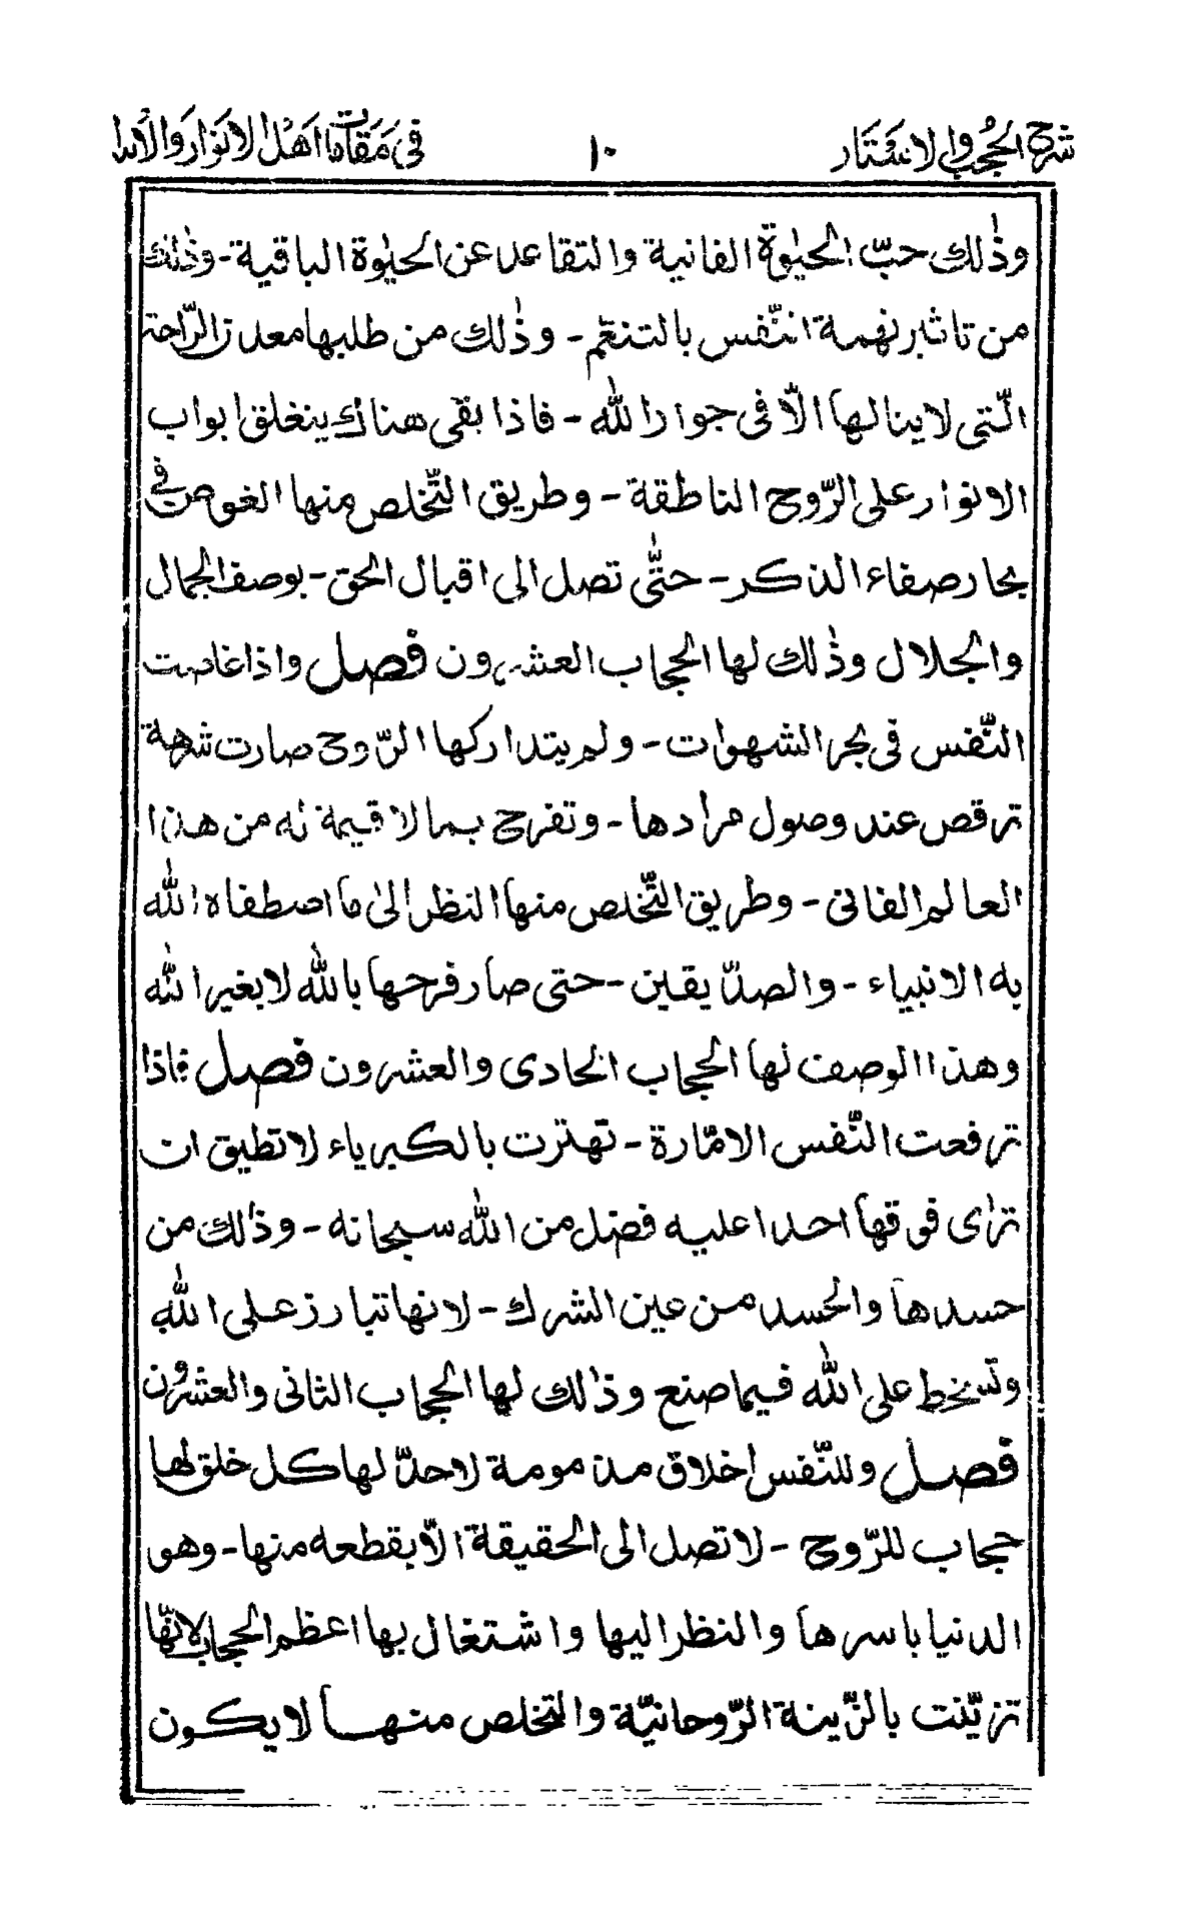 شرح الحُجب والاستتار ١٠ فى مَقامات اَهْل الانوار والاسرا
وذٰلك حبّ الحيٰوة الفانية والتقاعد عن الحيٰوة الباقية - وذٰلك
من تاثير نهمة النّفس بالتنعّم - وذٰلك من طلبها معدن الرّاحة
الّتى لا ينالها الّا فى جوار الله - فاذا بقى هناك ينغلق ابواب
الانوار على الرّوح الناطقة - وطريق التّخلص منها الغوص فى
بحار صفاء الذكر - حتّى تصل الى اقبال الحق - بوصف الجمال
والجلال وذٰلك لها الحجاب العشرون فصل واذا غاصت
النّفس فى بحر الشهوات - ولم يتداركها الرّوح صارت شرهة
ترقص عند وصول مرادها - وتفرح بما لا قيمة له من هذا
العالم الفانى - وطريق التّخلص منها النظر الىٰ ما اصطفاه الله
به الانبياء - والصدّيقين - حتى صار فرحها بالله لا بغير الله
وهذا الوصف لها الحجاب الحادى والعشرون فصل فاذا
ترفعت النّفس الامّارة - تهتزت بالكبرياء لا تطيق ان
ترٰى فوقها احدا عليه فضل من الله سبحانه - وذٰلك من
حسدها والحسد من عين الشرك - لانها تبارز على الله
وتسخط على الله فيما صنع وذٰلك لها الحجاب الثانى والعشرون
فصل وللنّفس اخلاق مذمومة لا حدّ لها كل خلق لها
حجاب للرّوح - لا تصل الى الحقيقة الّا بقطعه منها - وهو
الدنيا باسرها والنظر اليها واشتغال بها اعظم الحجاب لانّها
تزيّنت بالزّينة الرّوحانيّة والتخلص منها لا يكون